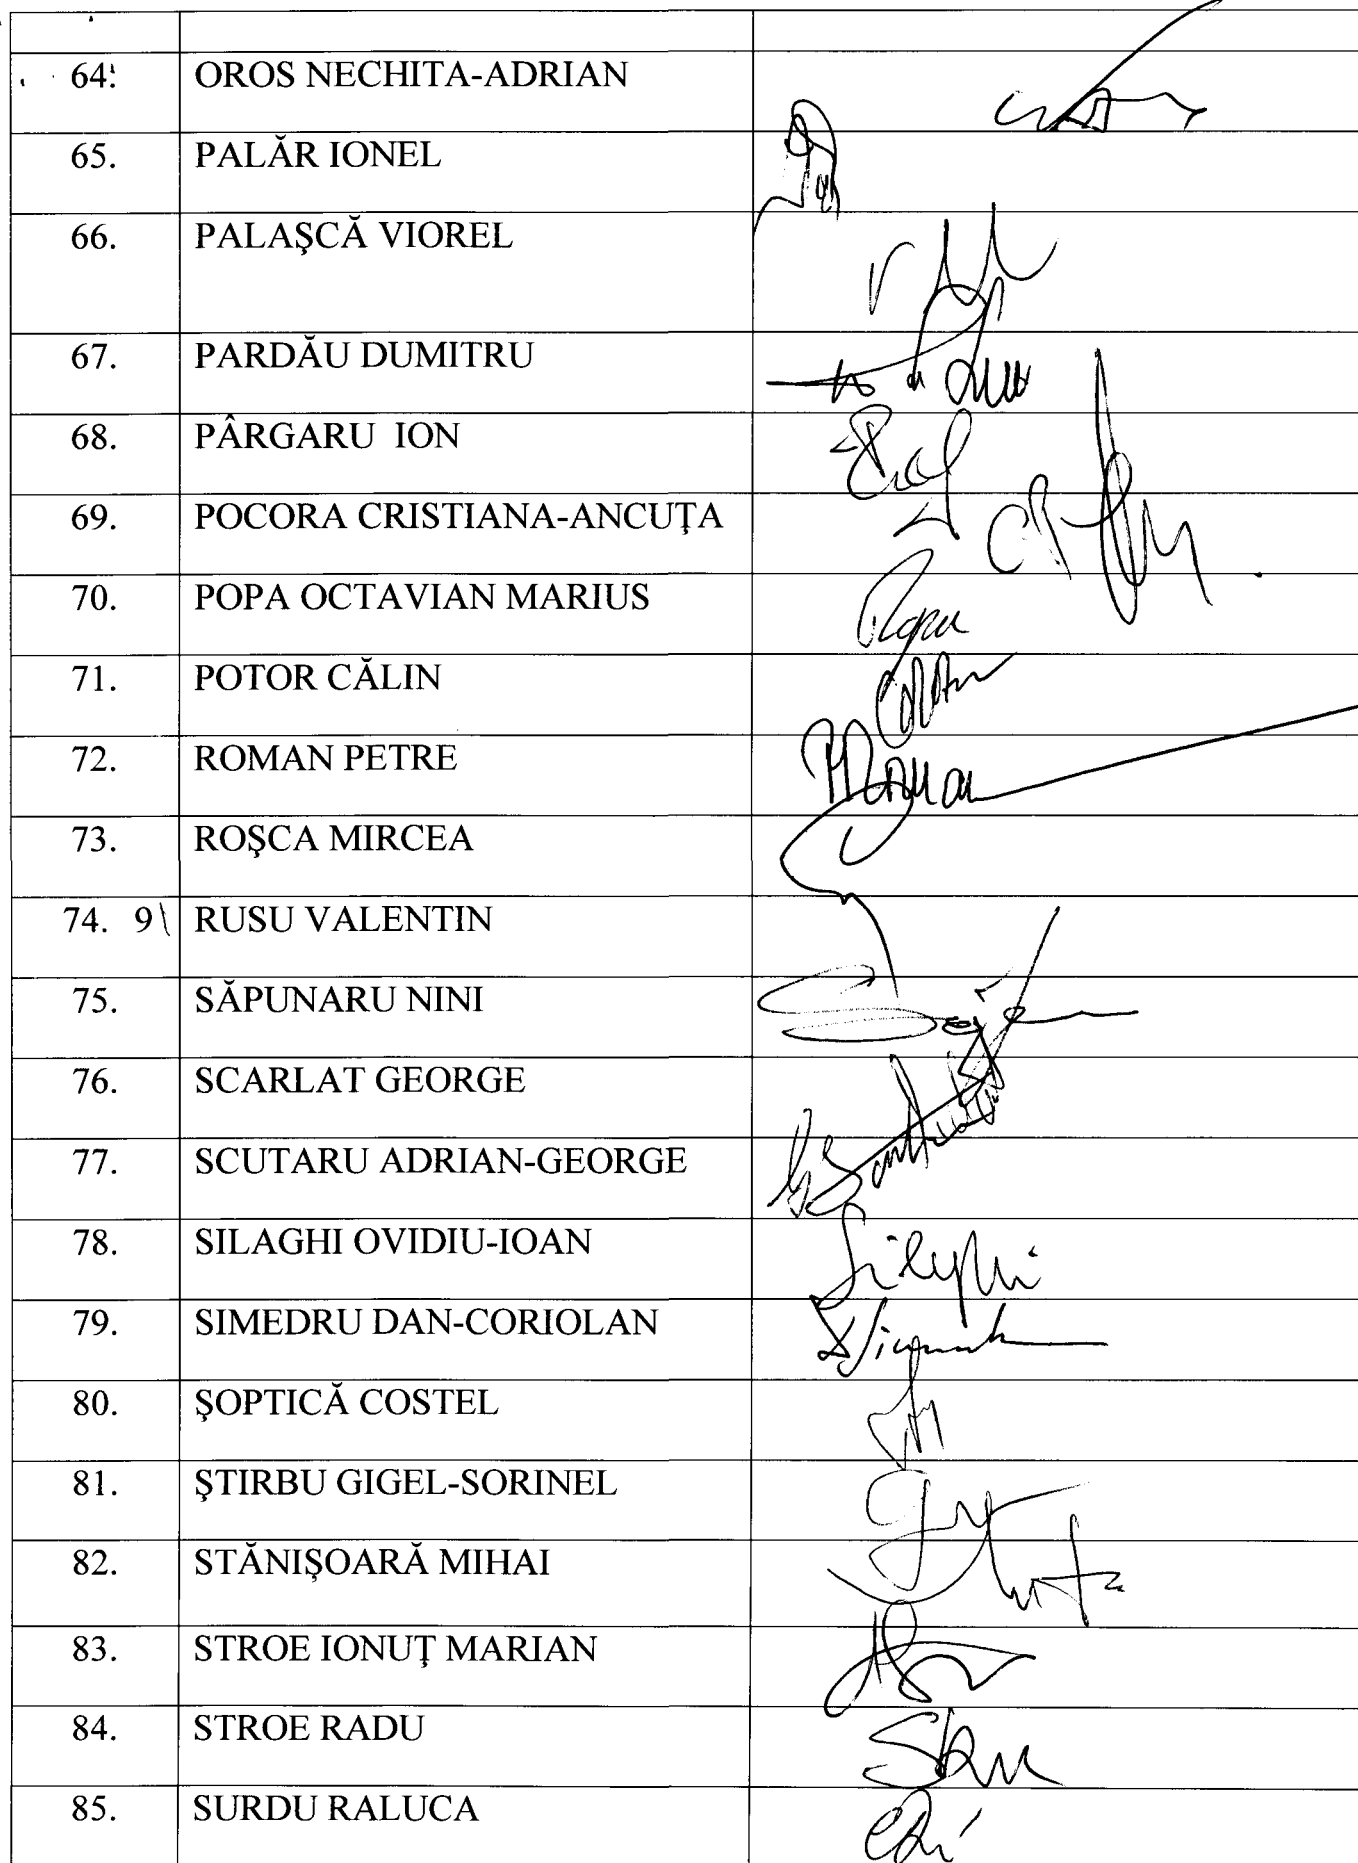 64. OROS NECHITA-ADRIAN
65. PALĂR IONEL
66. PALAŞCĂ VIOREL
67. PARDĂU DUMITRU
68. PÂRGARU ION
69. POCORA CRISTIANA-ANCUŢA
70. POPA OCTAVIAN MARIUS
71. POTOR CĂLIN
72. ROMAN PETRE
73. ROŞCA MIRCEA
74. 9\ RUSU VALENTIN
75. SĂPUNARU NINI
76. SCARLAT GEORGE
77. SCUTARU ADRIAN-GEORGE
78. SILAGHI OVIDIU-IOAN
79. SIMEDRU DAN-CORIOLAN
80. ŞOPTICĂ COSTEL
81. ŞTIRBU GIGEL-SORINEL
82. STĂNIŞOARĂ MIHAI
83. STROE IONUŢ MARIAN
84. STROE RADU
85. SURDU RALUCA